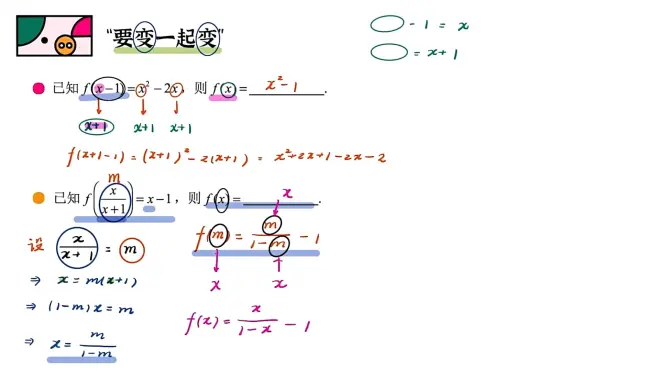 "要变一起变"
○ - 1 = x
○ = x+1
已知 f(x-1)=x²-2x，则 f(x)= x²-1 .
x+1 x+1 x+1
f(x+1-1)=(x+1)²-2(x+1) = x²+2x+1-2x-2
m
已知 f(x/(x+1))=x-1，则 f(x)= .
x
设 x/(x+1) = m
f(m)= m/(1-m) -1
⇒ x=m(x+1)
x x
⇒ (1-m)x=m
f(x)= x/(1-x) -1
⇒ x= m/(1-m)